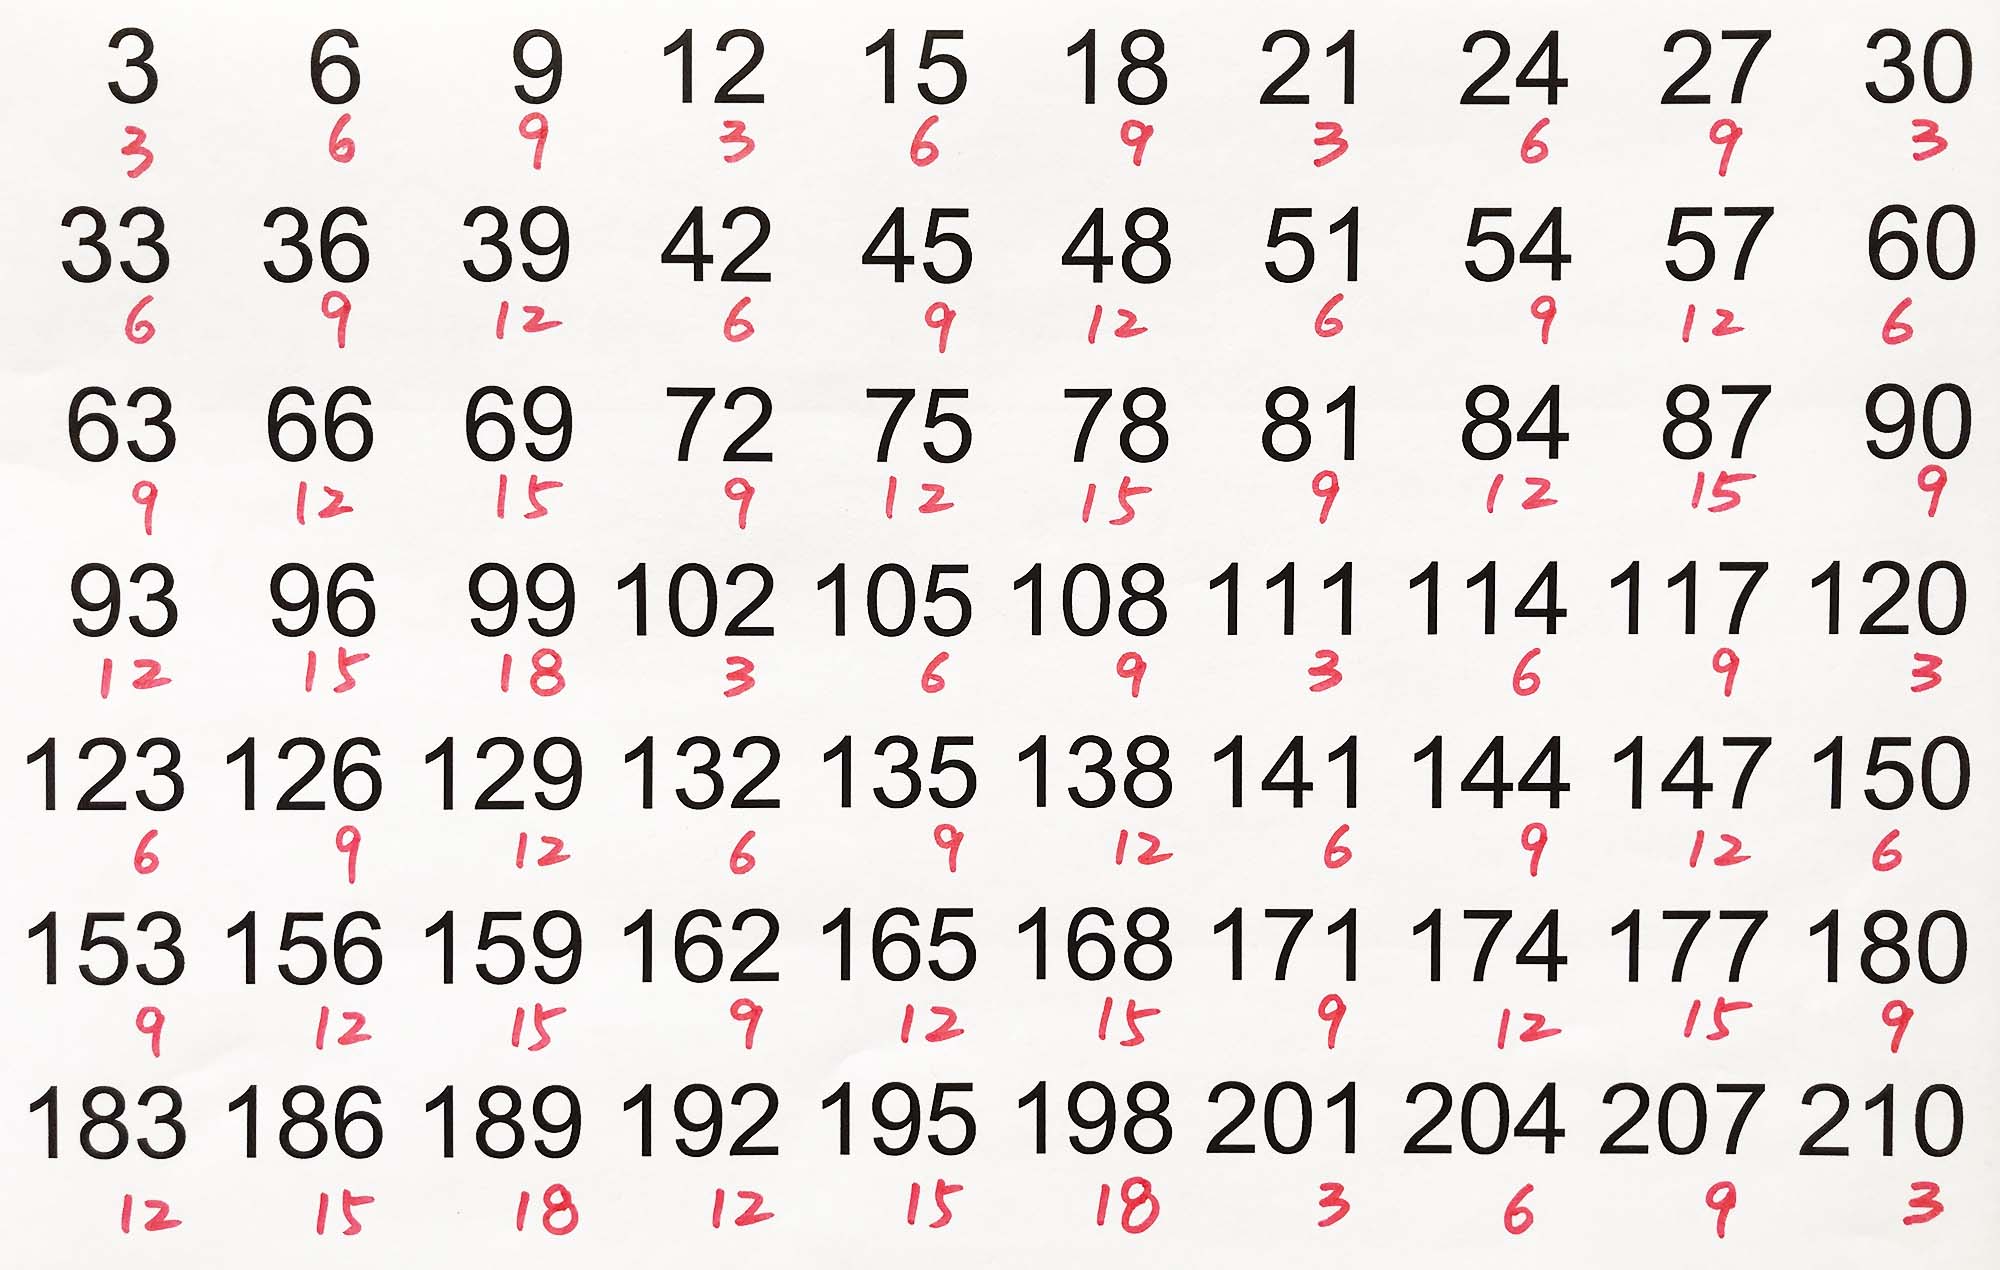 3 6 9 12 15 18 21 24 27 30
3 6 9 3 6 9 3 6 9 3
33 36 39 42 45 48 51 54 57 60
6 9 12 6 9 12 6 9 12 6
63 66 69 72 75 78 81 84 87 90
9 12 15 9 12 15 9 12 15 9
93 96 99 102 105 108 111 114 117 120
12 15 18 3 6 9 3 6 9 3
123 126 129 132 135 138 141 144 147 150
6 9 12 6 9 12 6 9 12 6
153 156 159 162 165 168 171 174 177 180
9 12 15 9 12 15 9 12 15 9
183 186 189 192 195 198 201 204 207 210
12 15 18 12 15 18 3 6 9 3